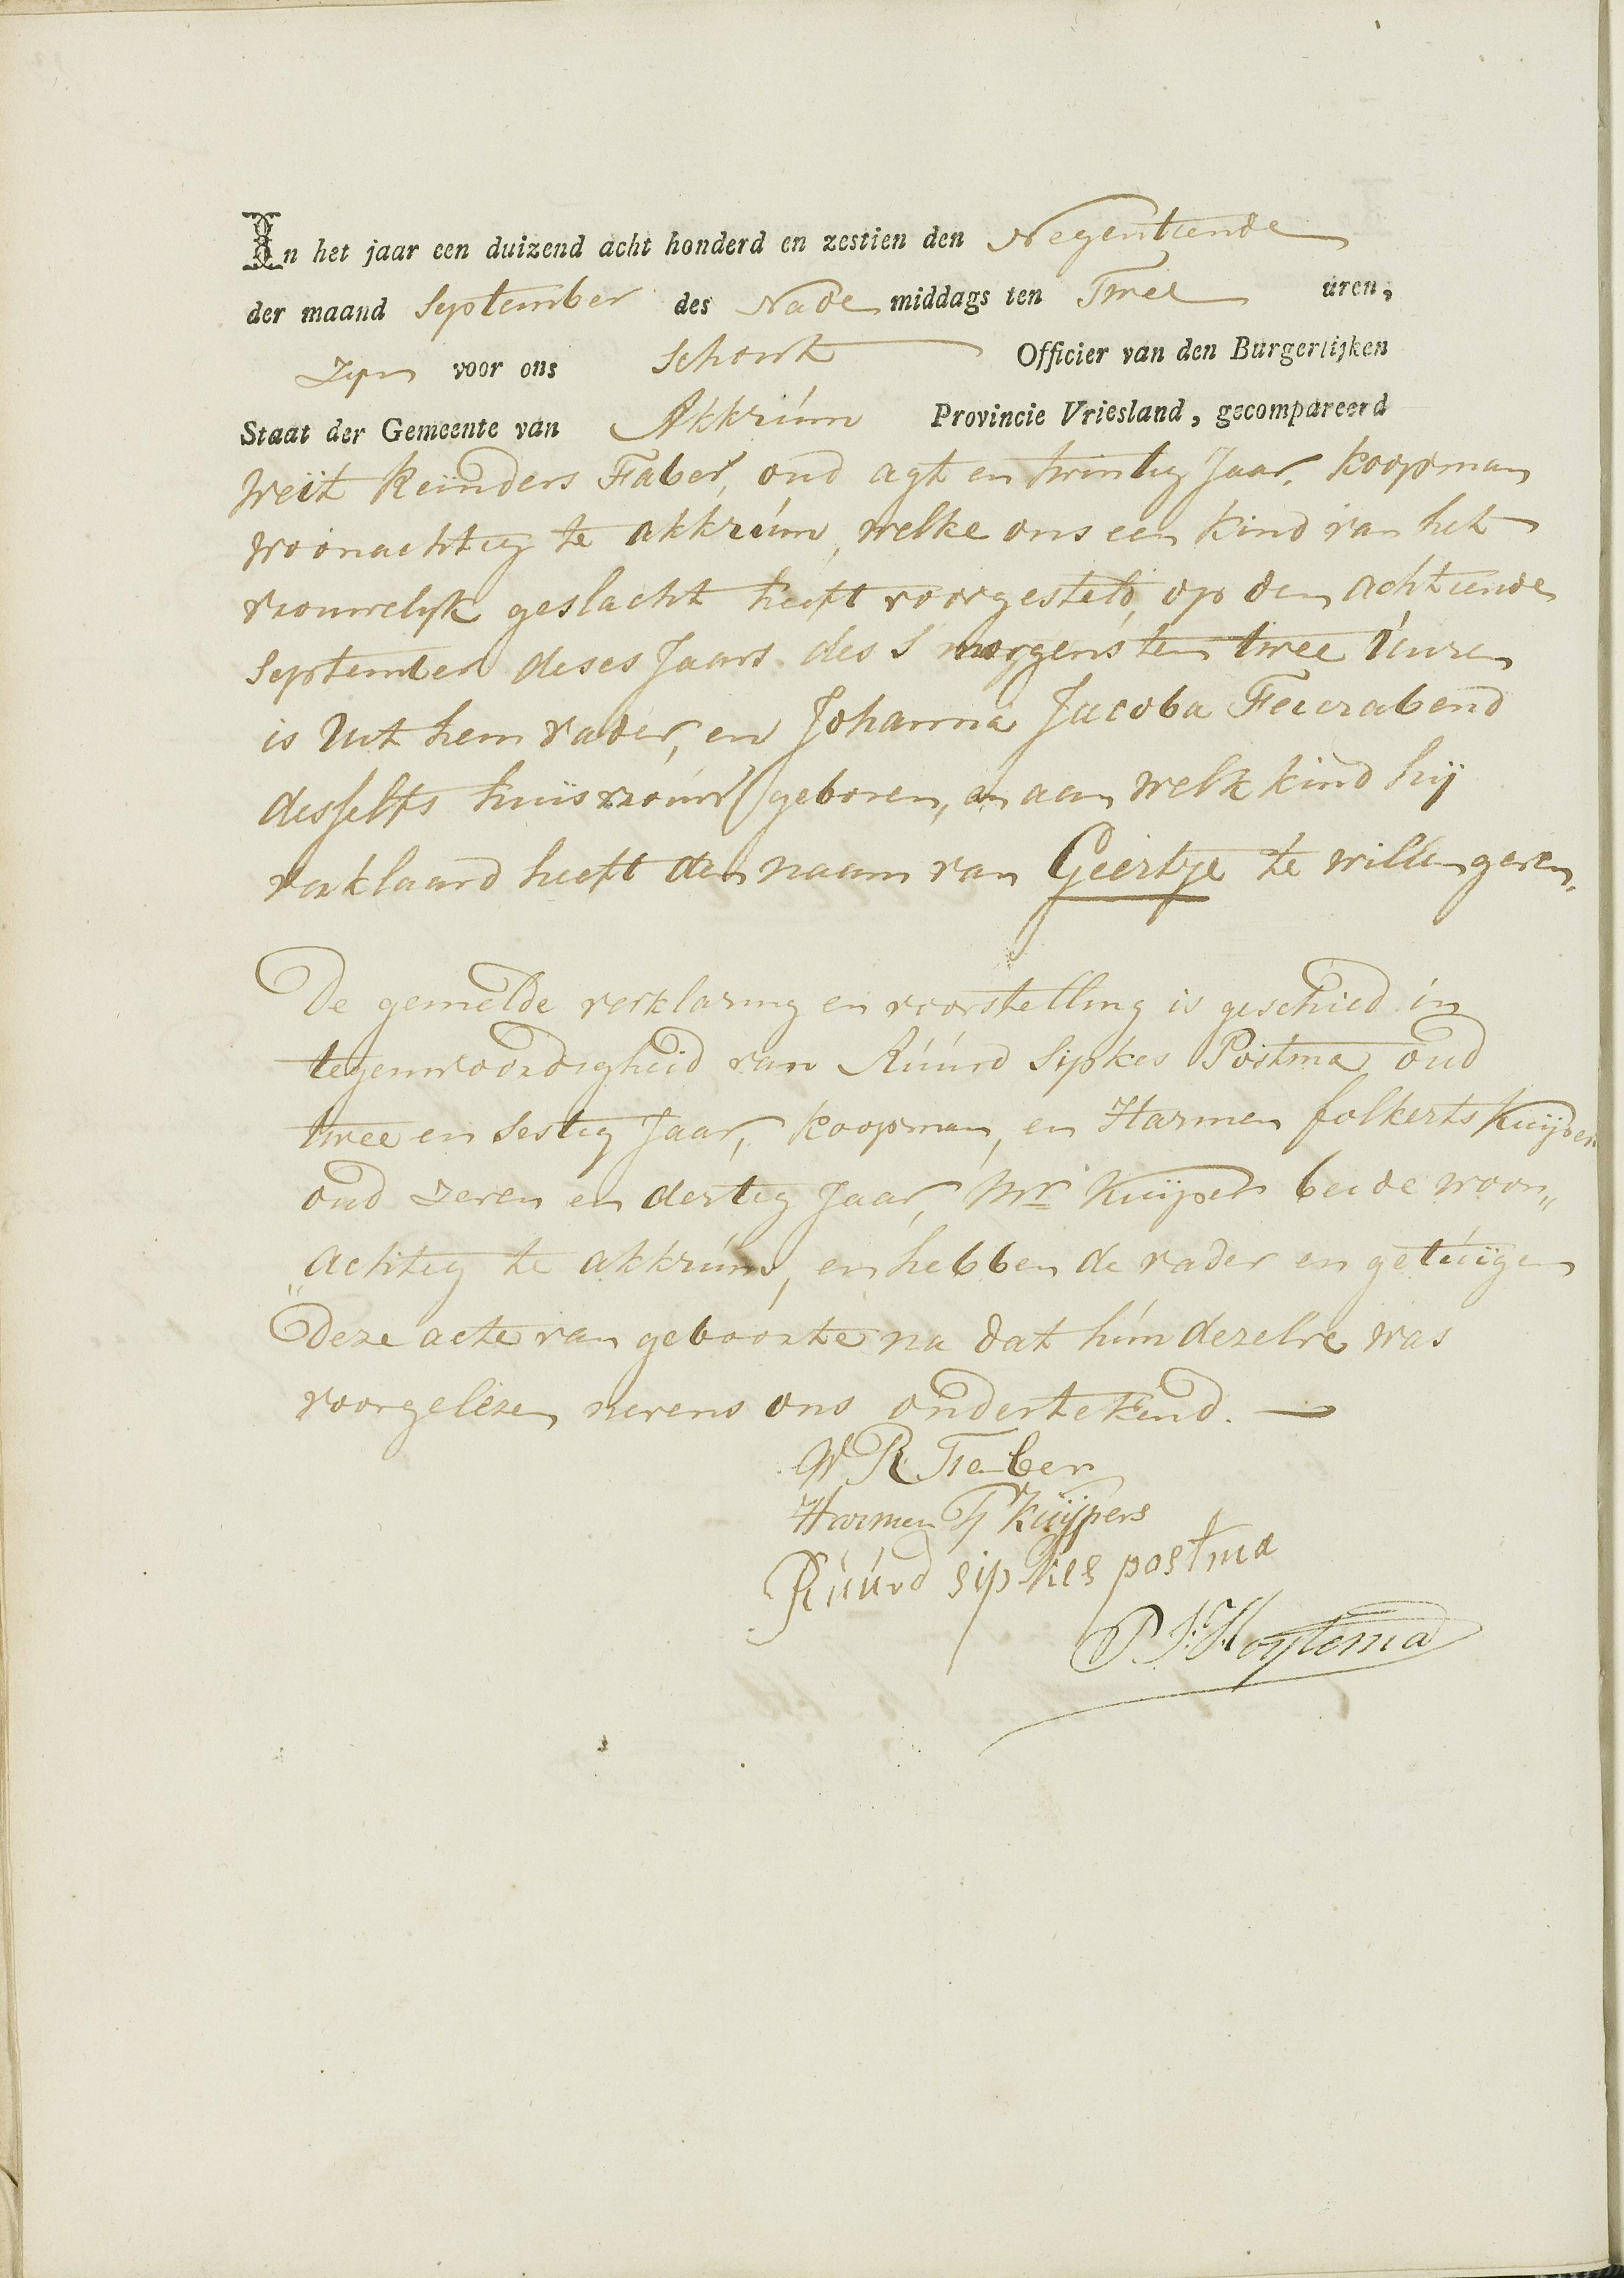 In het jaar een duizend acht honderd en zestien den Negentiende
der maand September des Nade middags ten Twee uren,
Zyn voor ons Schout Officier van den Burgerlijken
Staat der Gemeente van Akkrúm Provincie Vriesland, gecompareerd
Weit Reinders Faber, oud agt en twintig Jaar, koopman
woonachtig te akkrúm, welke ons een kind van het
vrouwelyk geslacht heeft voorgesteld, op den achtiende
September deses Jaars des S morgens ten twee Uuren
is Uut hem vader, en Johanna Jacoba Feierabend
desselfs huisvrouw geboren, en aan welk kind hij
verklaard heeft den naam van Geertje te willen geven,
De gemelde verklaring en voorstelling is geschied in
tegenwoordigheid van Rúúrd Sipkes Postma oud
twee en sestig Jaar, koopman, en Harmen folkerts Kuijpers
oud zeven en dertig Jaar, Mr Kuiper beide woon„
„achtig te akkrúm, en hebben de vader en getúigen
Deze acte van geboorte na dat húm dezelve was
voorgelezen nevens ons ondertekend. —
W R Faber
Harmen F Kuijpers
Rúúrd sipkes postma
P. F. Hoytema